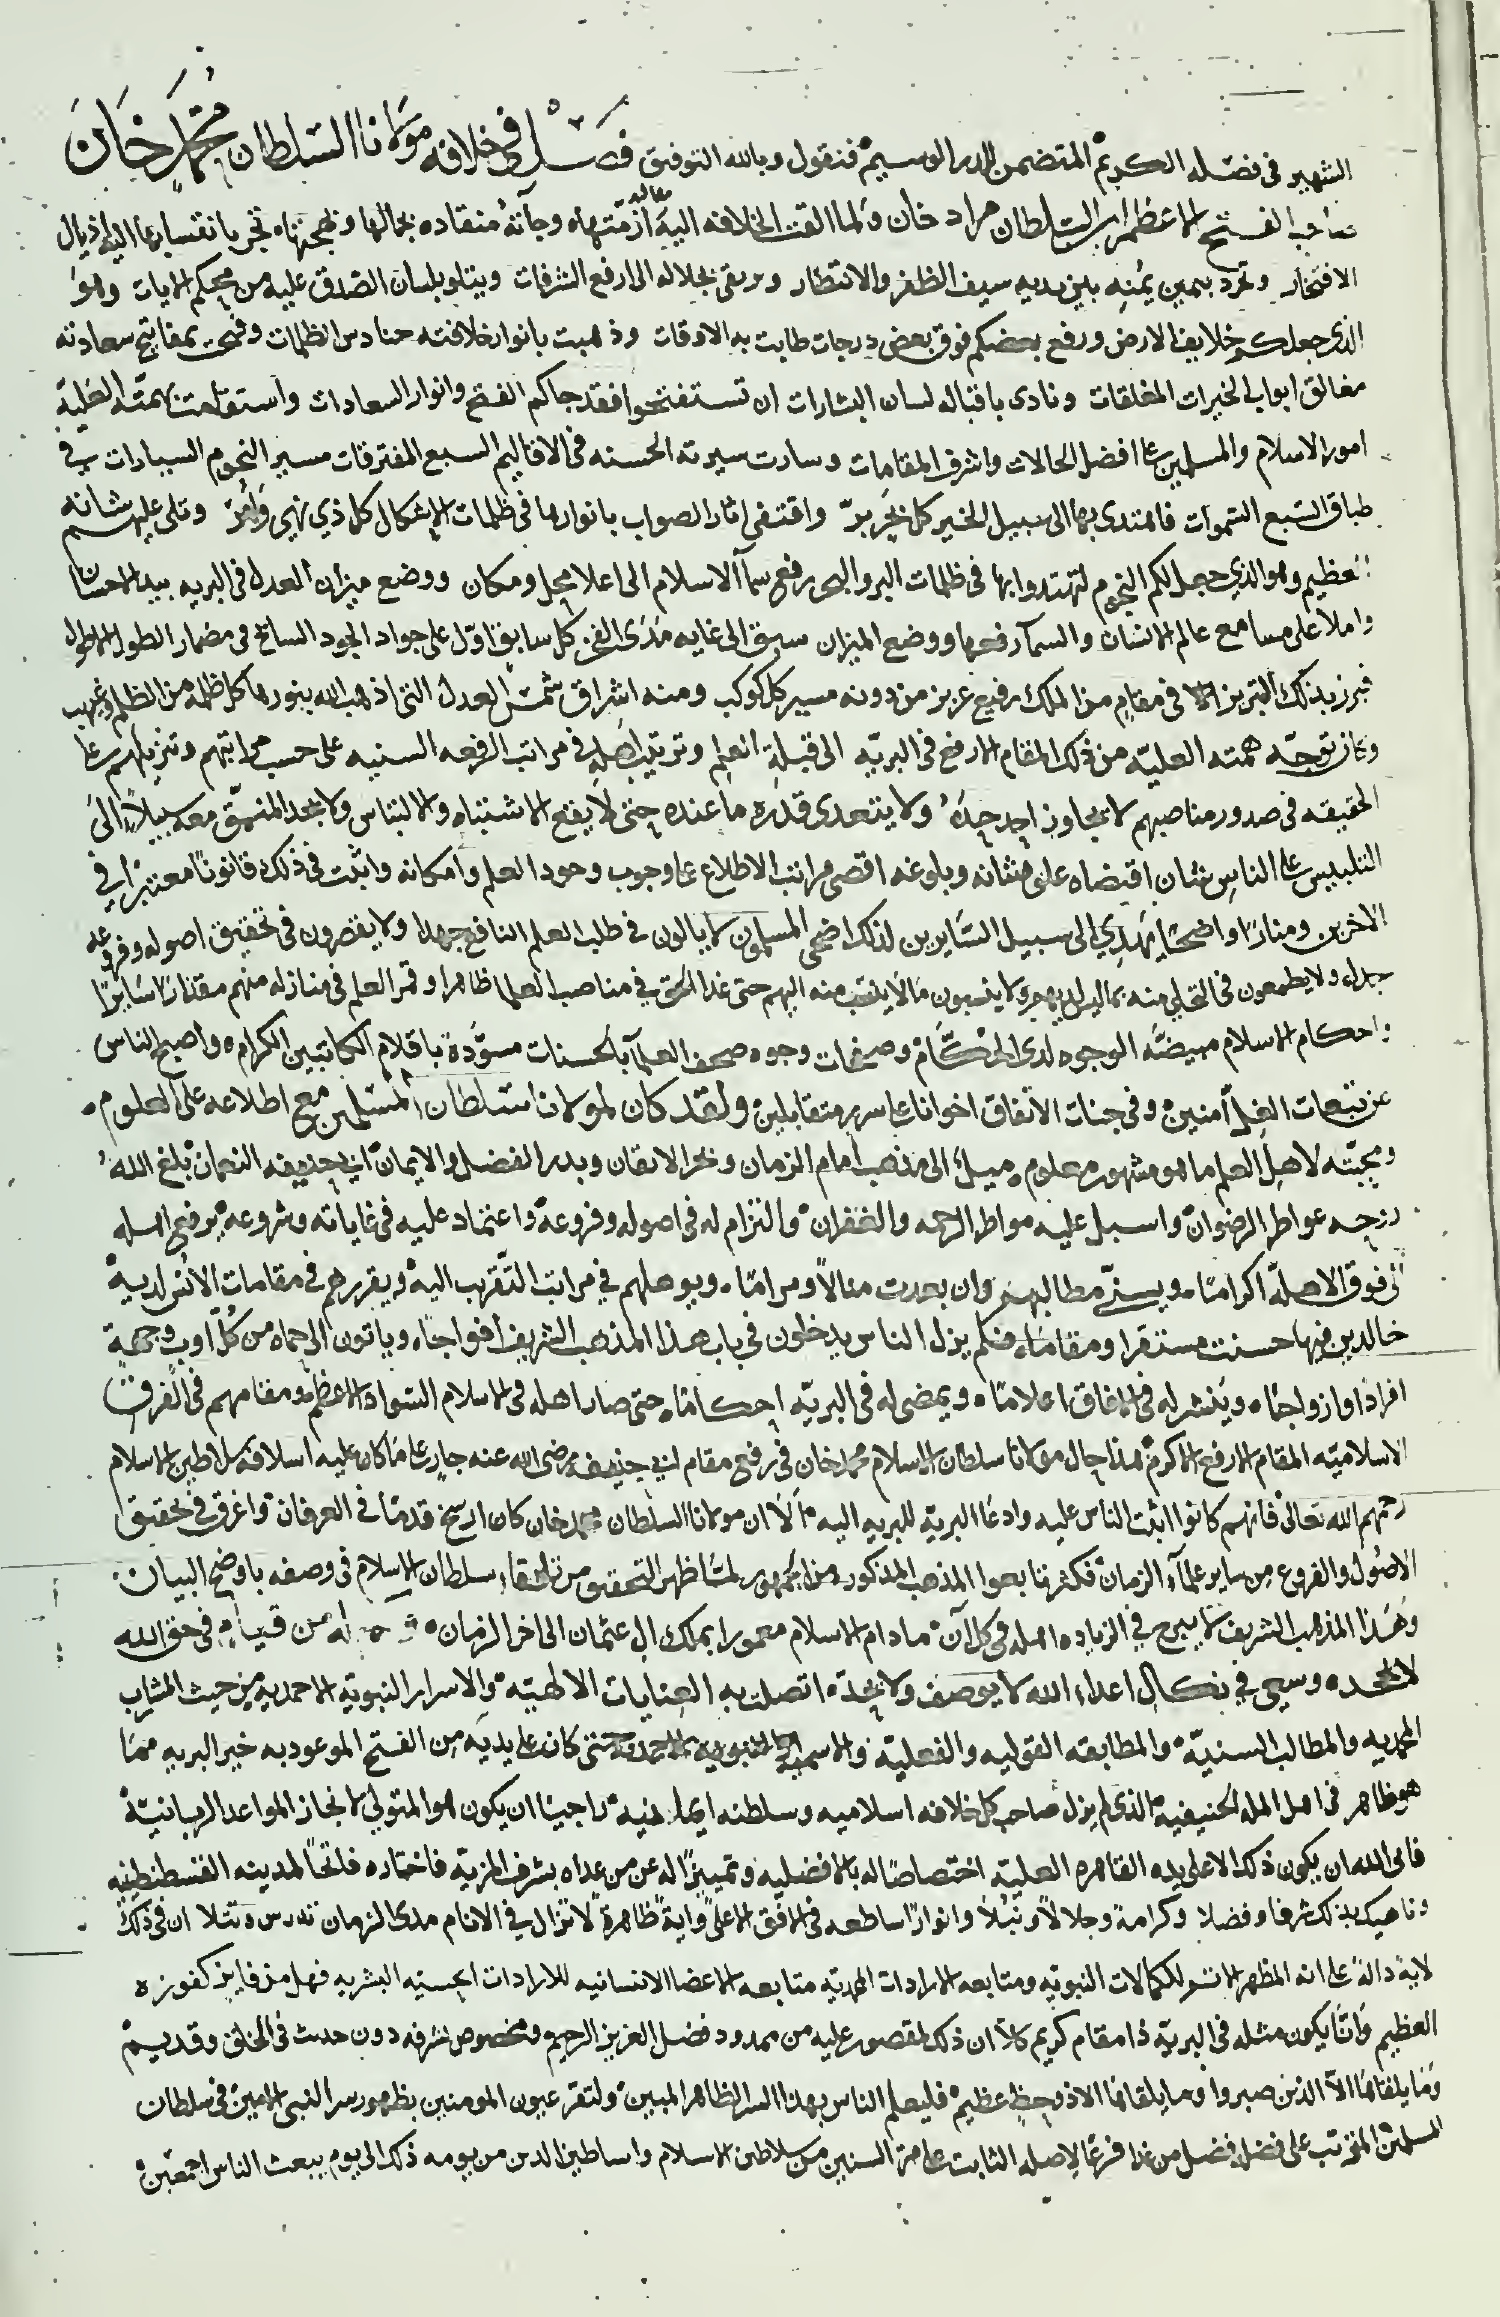 الشهير فى فضله الكريم المتضمن للدر الوسيم فنقول وبالله التوفيق فصل فى خلافه مولانا السلطان محمد خان
صاحب الفتح الاعظم ابن السلطان مراد خان ولما القت الخلافه اليه مقاليد ازمتها وجآته منقاده بجمالها وبهجتها تجر بانقسابها اليه اذيال
الافتخار وتجرد بيمين يمنه بين يديه سيف الظفر والانتظار ويرتقى بجلاله الى ارفع الشرفات ويتلو بلسان الصدق عليه من محكم الايات وهو
الذى جعلكم خلايف الارض ورفع بعضكم فوق بعض درجات طابت به الاوقات وذهبت بانوار خلافته حنادس الظلمات وفتحت بمفاتيح سعادته
مغالق ابواب الخيرات المغلقات ونادى باقباله لسان البشارات ان تستفتحوا فقد جاكم الفتح وانوار السعادات واستقامت بهمته العلية
امور الاسلام والمسلمين على افضل الحالات واشرف المقامات وسارت سيرته الحسنه فى الاقاليم السبع المفترقات مسير النجوم السيارات فى
طباق السبع السموات فاهتدى بها الى سبيل الخير كل بحر بر واقتفى اثار الصواب بانوارها فى ظلمات الاشكال كل ذي نهي وامر وتلى عليهم شانه
العظيم وهو الذي جعل لكم النجوم لتهتدوا بها فى ظلمات البر والبحر رفع سمآ الاسلام الى اعلا محل ومكان ووضع ميزان العدل فى البريه بيد الاحسان
واملا على مسامع عالم الانسان والسمآ رفعها ووضع الميزان سبق الى غايه مدى الفخر كل سابق اوّل على جواد الجود السابح فى مضمار الطول الاطول
فبرز بذلك التبريز الا فى مقام من الملك رفيع عزيز من دونه مسير كل كوكب ومنه اشراق شمس العدل التى اذهب الله بنورها كل ظلمه من الظلم وغيهب
وكان توجه همته العليه من ذلك المقام الارفع فى البريه الى قبلة العلم وترتيب اهله فى مراتب الرفعه السنيه على حسب مراتبهم وتنزيلهم على
الحقيقه فى صدور مناصبهم لا يجاوز احد حده ولا يتعدى قدره ما عنده حتى لا يقع الاشتباه والالتباس ولا يجد المنمق معه سبيلا الى
التلبيس على الناس بشان اقتضاه علو شانه وبلوغه اقصى مراتب الاطلاع على وجوب وجود العلم وامكانه واثبت فى ذلك قانونا معتبرا فى
الاخرين ومنارا واضحا يهدي الى سبيل السايرين لذلك اضحى المسلمون لا يالون فى طلب العلم النافع جهدا ولا يقصرون فى تحقيق اصوله وفروعه
جدا ولا يطمعون فى التحلى منه بما ليس لديهم ولا ينسبون مالا ينسب منه اليهم حتى غدا الحق فى مناصب العلما ظاهرا وقمر العلم فى منازله منهم مقدارا سايرا
واحكام الاسلام مبيضة الوجوه لدى الحكّام وصفحات وجوه صحف العلمآ بالحسنات مسوّدة باقلام الكاتبين الكرام واصبح الناس
عن تبعات الغل آمنين وفى جنات الاتفاق اخوانا على سرر متقابلين ولقد كان لمولانا سلطان المسلمين مع اطلاعه على العلوم
ومحبته لاهل العلم ما هو مشهور معلوم ميل الى مذهب امام الزمان وفخر الاتقان وبدر الفضل والايمان ابى حنيفه النعمان بلغ الله
روحه عواطر الرضوان واسبل عليه مواطر الرحمه والغفران والتزام له فى اصوله وفروعه واعتماد عليه فى غاياته وشروعه يرفع اهله
الى فوق الاهله اكراما ويسنّى مطالبهم وان بعدت منالا ومراما ويوصلهم فى مراتب التقرب اليه ويقررهم فى مقامات الانس لديه
خالدين فيها حسنت مستقرا ومقاما فلم يزل الناس يدخلون فى باب هذا المذهب الشريف افواجا وياتون الى حماه من كل اوب وجهة
افرادا وازواجا وينشر له فى الافاق اعلاما ويمضى له فى البريه احكاما حتى صار اهله فى الاسلام السواد الاعظم ومقامهم فى الفرق
الاسلاميه المقام الارفع الاكرم هذا حال مولانا سلطان الاسلام محمد خان فى رفع مقام ابى حنيفه رضى الله عنه جار على ما كان عليه اسلافه سلاطين الاسلام
رحمهم الله تعالى فانهم كانوا اثبت الناس عليه وادعا البرية للبريه اليه الا ان مولانا السلطان محمد خان كان ارسخ قدما فى العرفان واغرق فى تحقيق
الاصول والفروع من ساير علمآء الزمان فكثر تابعوا المذهب المذكور من الجمهور لما ظهر التحقيق من تلقاء سلطان الاسلام فى وصفه باوضح البيان
وهذا المذهب الشريف لا يبرح فى الزياده اهله فى كل آن ما دام الاسلام معمورا بملك ال عثمان الى اخر الزمان له من قيام فى حق الله
لا يحده وسعى فى نكال اعداء الله لا يوصف ولا يحدّه اتصلت به العنايات الالهيه والاسرار النبويه الاحمديه من حيث المشارب
المحمديه والمطالب السنيّه والمطابقه القوليه والفعليه والاسميه النبويه الاحمديه حتى كان على يديه من الفتح الموعود به خير البريه مما
هو ظاهر فى اهل المله الحنيفيه الذى لم يزل صاحب كل خلافه اسلاميه وسلطنه ايمانيه راجيا ان يكون هو المتولى لانجاز المواعد الربانية
فابى الله ان يكون ذلك الا على يده القاهره العلية اختصاصا له بالافضليه وتمييزا له عن من عداه بشرف المزية فاختاره فاتحا لمدينه القسطنطينيه
وناهيك بذلك شرفا وفضلا وكرامة وجلالا ونبلا وانوارا ساطعه فى الافق الاعلى واية ظاهرة لا تزال فى الانام مدى الزمان تدرس وتتلا ان فى ذلك
لاية دالة على انه المظهر الاتم للكمالات النبويه ومتابعه الارادات المحمديه متابعه الاعضا الانسانيه للارادات الحسيه البشريه فهل من فايز كفوزه
العظيم وانّا يكون مثله فى البريه ذا مقام كريم كلا ان ذلك لمقصور عليه من ممدود فضل العزيز الرحيم ومخصوص بشرفه دون حدث فى الخلق وقديم
وما يلقاها الا الذين صبروا وما يلقاها الا ذو حظ عظيم فليعلم الناس بهذا السر الظاهر المبين ولتقر عيون المومنين بظهور سر النبى الامين فى سلطان
المسلمين المترتب على فضله فضل من غدا فرعا لاصله الثابت على مر السنين من سلاطين الاسلام واساطين الدين من يومه ذلك الى يوم يبعث الناس اجمعين